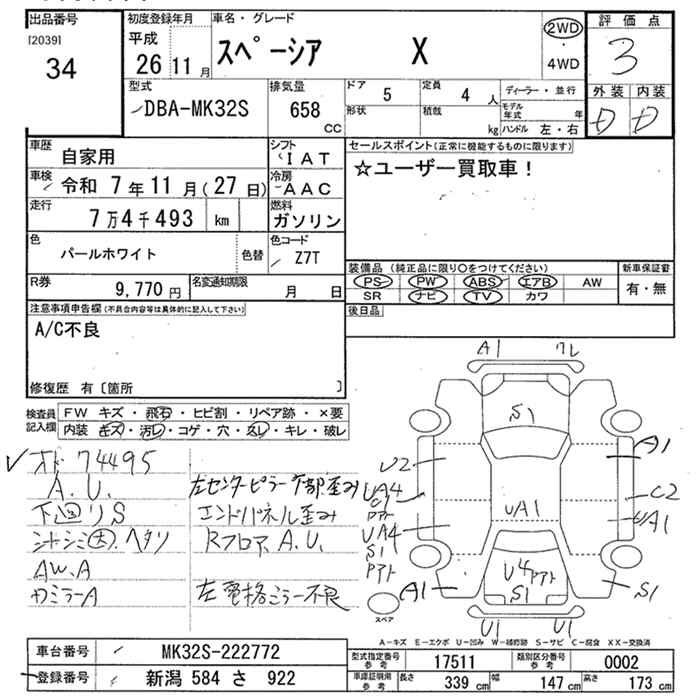 出品番号
[2039]
34
初度登録年月
平成
26 11月
車名・グレード
スペーシア X
2WD
・
4WD
評価点
3
外装 内装
D D
型式
DBA-MK32S
排気量
658
CC
ドア 5
定員 4 人
形状
積載 kg
ディーラー・並行
モデル年式 年
ハンドル 左・右
車歴
自家用
シフト
IAT
車検
令和 7年 11月(27日)
冷房
AAC
走行
7万4千493 km
燃料
ガソリン
色
パールホワイト
色替
色コード
Z7T
R券
9,770円
名変通知期限
月 日
セールスポイント(正常に機能するものに限ります)
☆ユーザー買取車!
装備品(純正品に限り○をつけてください)
PS PW ABS エアB AW
SR ナビ TV カワ
新車保証書
有・無
後日品
注意事項申告欄(不具合内容等は具体的に記入して下さい)
A/C不良
修復歴 有〔箇所 〕
検査員
記入欄
FW キズ・飛石・ヒビ割・リペア跡・×要
内装 キズ・汚レ・コゲ・穴・スレ・キレ・破レ
オド 74495
A.U.
下廻リS
シートシミ大.ヘタリ
AW.A
カミラーA
左センターピラー下部歪み
エンドパネル歪み
Rフロア A.U.
左電格ミラー不良
A1 ワレ
S1
A1
U2
UA4
C1
アト
UA4
S1
アト
C2
UA1
UA1
U4アト
S1
A1
S1
U1 U1
スペア
A-キズ E-エクボ U-凹み W-補修跡 S-サビ C-腐食 XX-交換済
車台番号
MK32S-222772
登録番号
新潟 584 さ 922
型式指定番号
参考
17511
類別区分番号
参考
0002
車庫証明用
参考
長さ 339 cm
幅 147 cm
高さ 173 cm